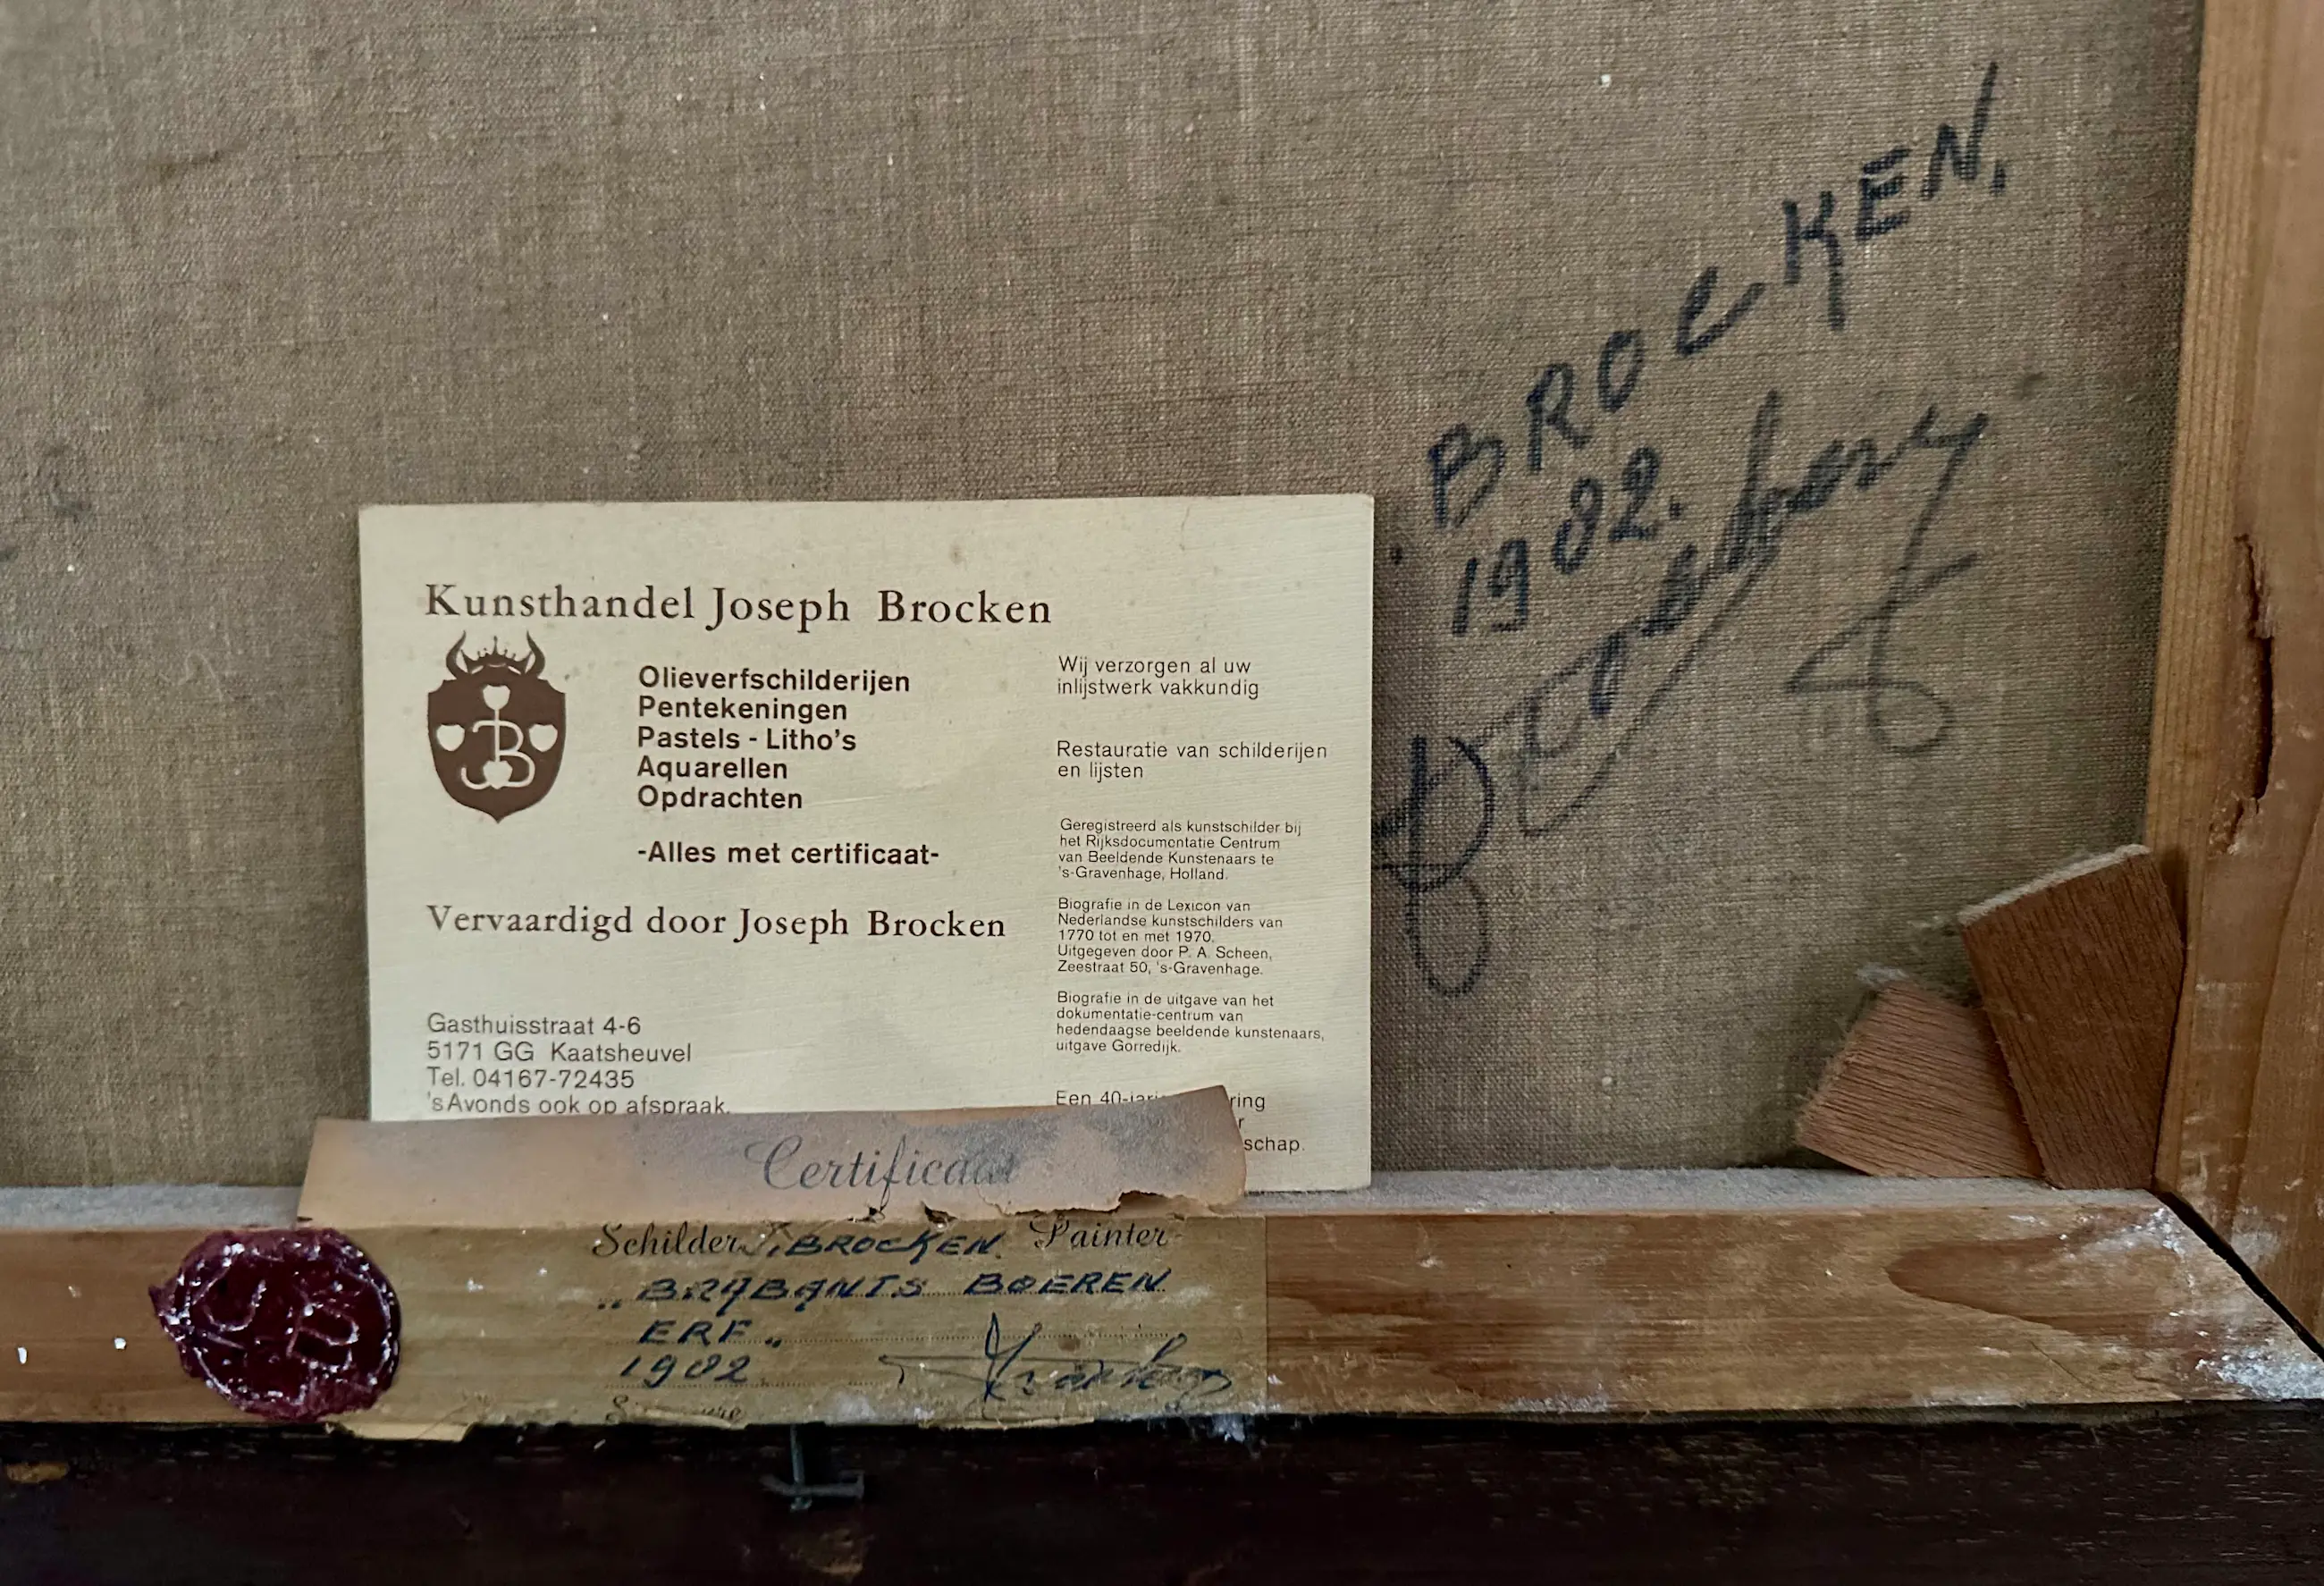 BROCKEN.
1982.
Kunsthandel Joseph Brocken
JB
Olieverfschilderijen
Pentekeningen
Pastels - Litho's
Aquarellen
Opdrachten
-Alles met certificaat-
Vervaardigd door Joseph Brocken
Gasthuisstraat 4-6
5171 GG Kaatsheuvel
Tel. 04167-72435
'sAvonds ook op afspraak.
Wij verzorgen al uw
inlijstwerk vakkundig
Restauratie van schilderijen
en lijsten
Geregistreerd als kunstschilder bij
het Rijksdocumentatie Centrum
van Beeldende Kunstenaars te
's-Gravenhage, Holland.
Biografie in de Lexicon van
Nederlandse kunstschilders van
1770 tot en met 1970.
Uitgegeven door P. A. Scheen,
Zeestraat 50, 's-Gravenhage.
Biografie in de uitgave van het
dokumentatie-centrum van
hedendaagse beeldende kunstenaars,
uitgave Gorredijk.
Een
schap.
Certificaat
Schilder J. BROCKEN. Painter
„BRABANTS BOEREN
ERF„
1982
JB